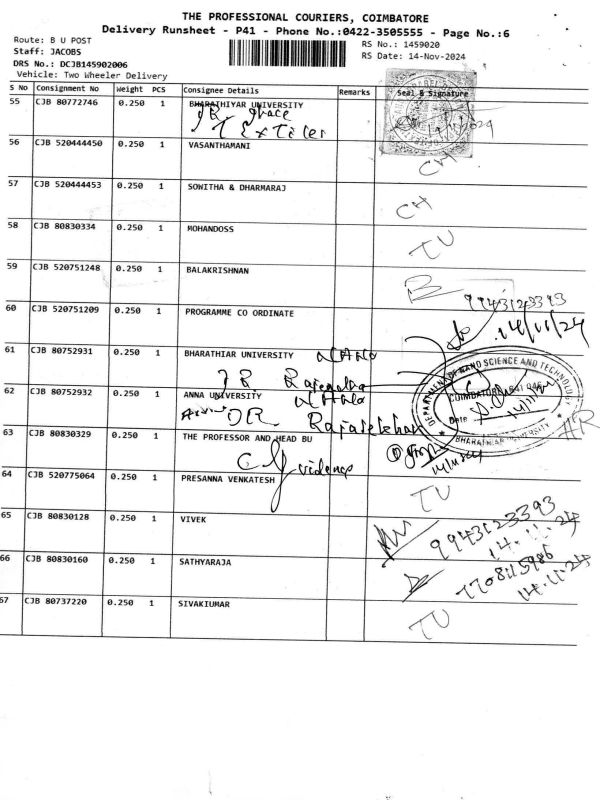 THE PROFESSIONAL COURIERS, COIMBATORE
Delivery Runsheet - P41 - Phone No.:0422-3505555 - Page No.:6
Route: B U POST
RS No.: 1459020
Staff: JACOBS
RS Date: 14-Nov-2024
DRS No.: DCJB145902006
Vehicle: Two Wheeler Delivery
S No Consignment No Weight PCS Consignee Details Remarks Seal & Signature
55 CJB 80772746 0.250 1 BHARATHIYAR UNIVERSITY
DR. Grace
Textiles
56 CJB 520444450 0.250 1 VASANTHAMANI CH
57 CJB 520444453 0.250 1 SOWITHA & DHARMARAJ CH
58 CJB 80830334 0.250 1 MOHANDOSS TU
59 CJB 520751248 0.250 1 BALAKRISHNAN
9943123393
60 CJB 520751209 0.250 1 PROGRAMME CO ORDINATE 14/11/24
61 CJB 80752931 0.250 1 BHARATHIAR UNIVERSITY NANO
DR.
DEPARTMENT OF NANO SCIENCE AND TECHNOLOGY
COIMBATORE - 641 046
Date
BHARATHIAR UNIVERSITY
62 CJB 80752932 0.250 1 ANNA UNIVERSITY NANO
DR Rajasekhar
63 CJB 80830329 0.250 1 THE PROFESSOR AND HEAD BU
64 CJB 520775064 0.250 1 PRESANNA VENKATESH TU
65 CJB 80830128 0.250 1 VIVEK 9943123393
14.11.24
66 CJB 80830160 0.250 1 SATHYARAJA 7708115986
14.11.24
67 CJB 80737220 0.250 1 SIVAKIUMAR TU